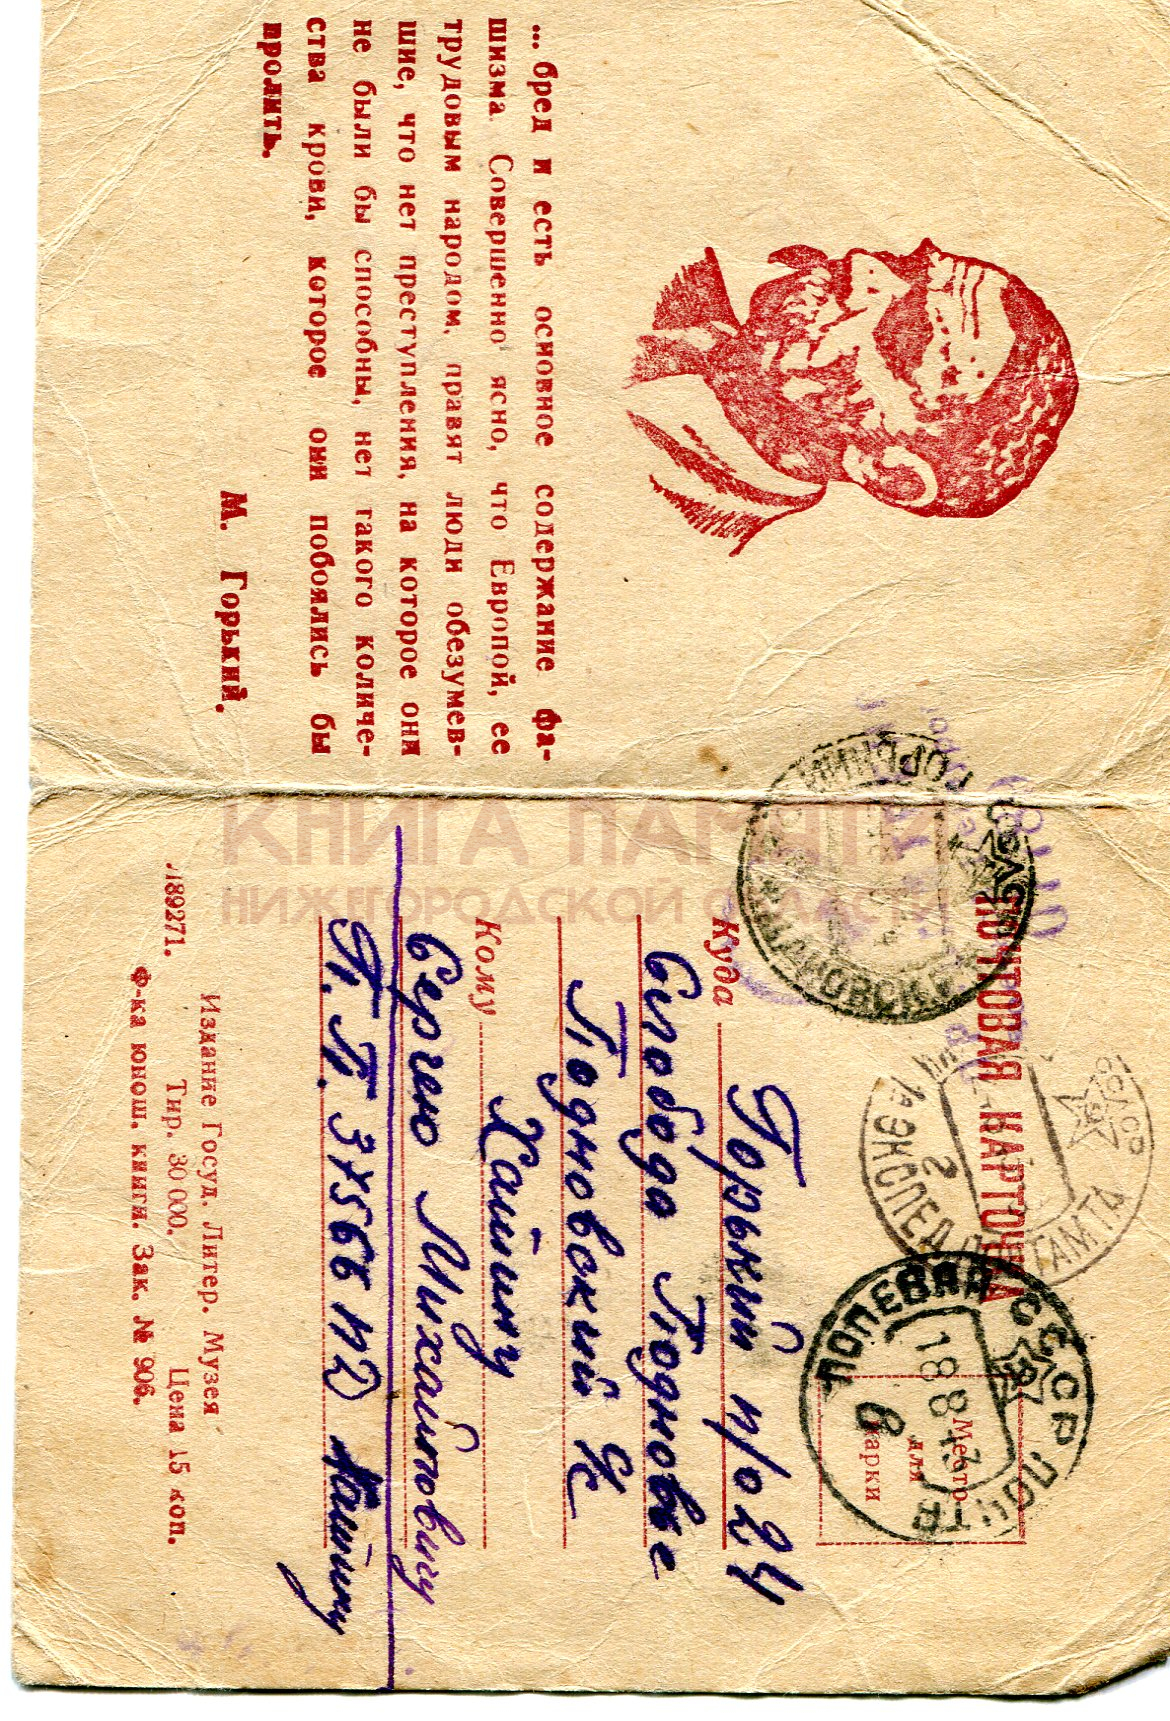 ...бред и есть основное содержание фа-
шизма. Совершенно ясно, что Европой, ее
трудовым народом, правят люди обезумев-
шие, что нет преступления, на которое они
не были бы способны, нет такого количе-
ства крови, которое они побоялись бы
пролить.
М. Горький.
КНИГА ПАМЯТИ
НИЖЕГОРОДСКОЙ ОБЛАСТИ
ПОЧТОВАЯ КАРТОЧКА
Место
для
марки
СССР ПОЧТА
ПОЛЕВАЯ
18 8 43
Куда
Горький п/о 24
Слобода Подновье
Подновский
Кому
Хайкину
Сергею Михайловичу
П.П. 37566
Издание Госуд. Литер. Музея
Тир. 30 000. Цена 15 коп.
Л89271. Ф-ка юнош. книги. Зак. № 906.